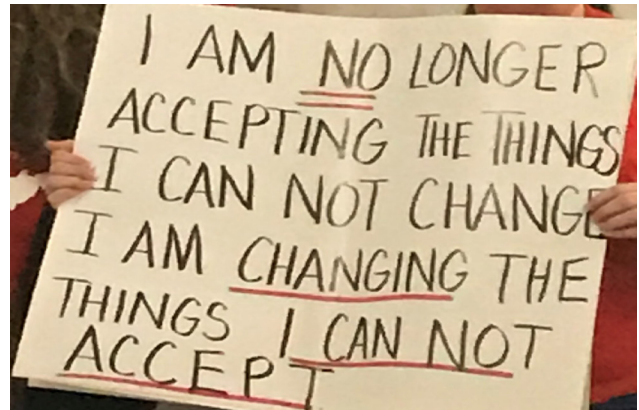 I AM NO LONGER
ACCEPTING THE THINGS
I CAN NOT CHANGE
I AM CHANGING THE
THINGS I CAN NOT
ACCEPT